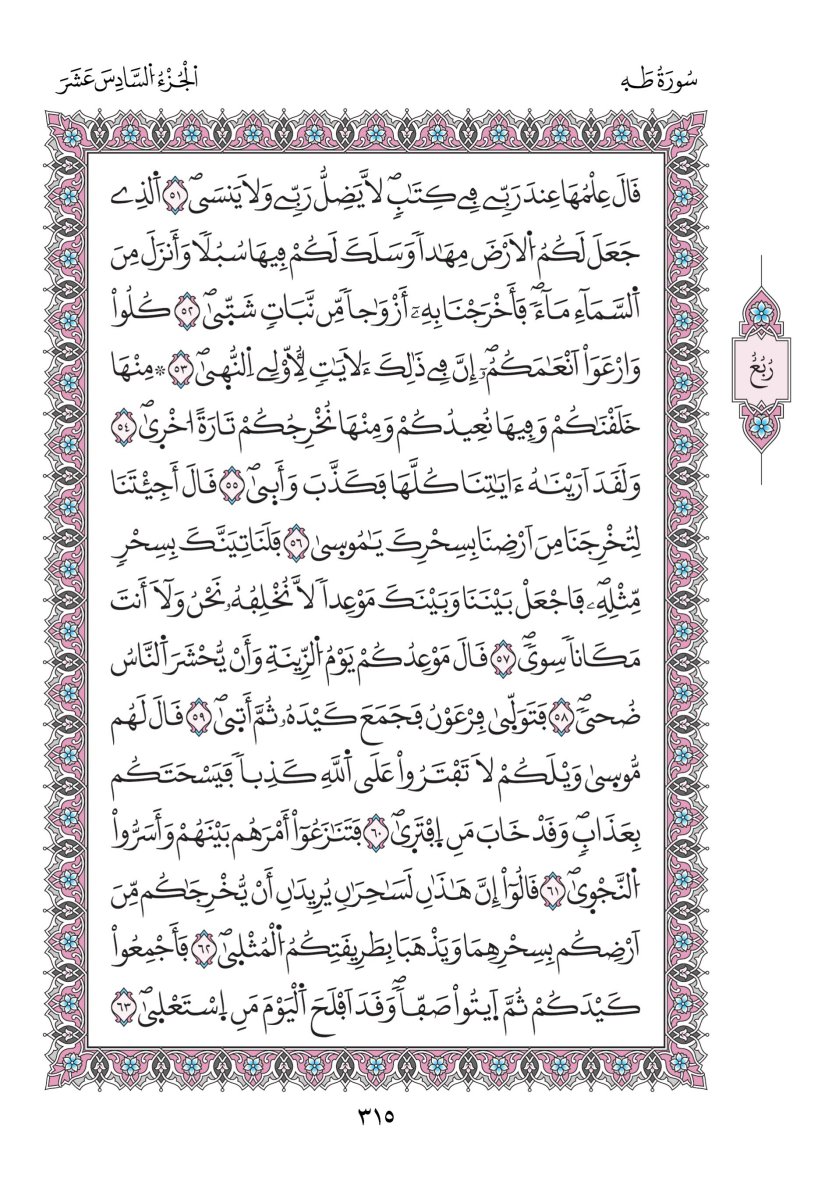 سُورَةُ طَهِ
اَ۬لْجُزْءُ اُ۬لسَّادِسَ عَشَرَ
قَالَ عِلْمُهَا عِندَ رَبِّے فِے كِتَٰبٖۖ لَّا يَضِلُّ رَبِّے وَلَا يَنسَيۖ ٥١ اَ۬لذِے
جَعَلَ لَكُمُ اُ۬لَارْضَ مِهَٰداٗ وَسَلَكَ لَكُمْ فِيهَا سُبُلٗا وَأَنزَلَ مِنَ
اَ۬لسَّمَآءِ مَآءٗۖ فَأَخْرَجْنَا بِهِۦٓ أَزْوَٰجاٗ مِّن نَّبَاتٖ شَتّ۪يٰۖ ٥٢ كُلُواْ
وَارْعَوَاْ اَنْعَٰمَكُمُۥٓۖ إِنَّ فِے ذَٰلِكَ ءَلَايَٰتٖ لِّأُوْلِے اِ۬لنُّه۪يٰۖ ٥٣ ۞مِنْهَا
خَلَقْنَٰكُمْ وَفِيهَا نُعِيدُكُمْ وَمِنْهَا نُخْرِجُكُمْ تَارَةً ا۟خْر۪يٰۖ ٥٤
وَلَقَدَ اَرَيْنَٰهُ ءَايَٰتِنَا كُلَّهَا فَكَذَّبَ وَأَب۪يٰۖ ٥٥ قَالَ أَجِئْتَنَا
لِتُخْرِجَنَا مِنَ اَرْضِنَا بِسِحْرِكَ يَٰمُوس۪يٰ ٥٦ فَلَنَاتِيَنَّكَ بِسِحْرٖ
مِّثْلِهِۦۖ فَاجْعَلْ بَيْنَنَا وَبَيْنَكَ مَوْعِداٗ لَّا نُخْلِفُهُۥ نَحْنُ وَلَآ أَنتَ
مَكَاناٗ سِويٗۖ ٥٧ قَالَ مَوْعِدُكُمْ يَوْمُ اُ۬لزِّينَةِ وَأَنْ يُّحْشَرَ اَ۬لنَّاسُ
ضُحيٗۖ ٥٨ فَتَوَلّ۪يٰ فِرْعَوْنُ فَجَمَعَ كَيْدَهُۥ ثُمَّ أَت۪يٰۖ ٥٩ قَالَ لَهُم
مُّوس۪يٰ وَيْلَكُمْ لَا تَفْتَرُواْ عَلَي اَ۬للَّهِ كَذِباٗ فَيَسْحَتَكُم
بِعَذَابٖۖ وَقَدْ خَابَ مَنِ اِ۪فْتَر۪يٰۖ ٦٠ فَتَنَٰزَعُوٓاْ أَمْرَهُم بَيْنَهُمْ وَأَسَرُّواْ
اُ۬لنَّجْو۪يٰۖ ٦١ قَالُوٓاْ إِنَّ هَٰذَٰنِ لَسَٰحِرَٰنِ يُرِيدَٰنِ أَنْ يُّخْرِجَٰكُم مِّنَ
اَرْضِكُم بِسِحْرِهِمَا وَيَذْهَبَا بِطَرِيقَتِكُمُ اُ۬لْمُثْل۪يٰۖ ٦٢ فَأَجْمِعُواْ
كَيْدَكُمْ ثُمَّ اَ۪يتُواْ صَفّاٗۖ وَقَدَ اَفْلَحَ اَ۬لْيَوْمَ مَنِ اِ۪سْتَعْل۪يٰۖ ٦٣
رُبُعُ
٣١٥